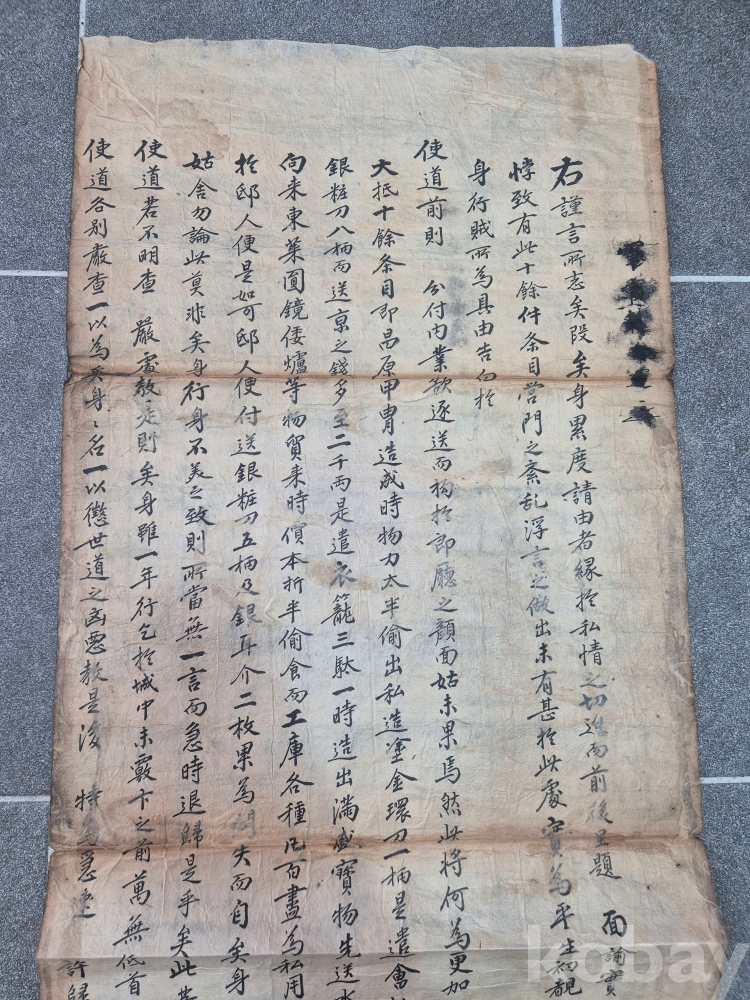 右謹言所志矣段矣身累度請由者緣於私情之切迫而前後呈題 面諭實
悖致有此十餘件条目営門之紊乱浮言之做出未有甚於此處實為平生初覩
身行賊所為具由告向於
使道前則 分付內業欲逐送而拘於郎廳之顔面姑未果焉然此將何為更加
大抵十餘条目即昌原甲冑造成時物力太半偷出私造塗金環刀一柄是遣會
銀粧刀八柄而送京之錢多至二千兩是遣衣籠三駄一時造出滿盛寶物先送
向来東菜圓鏡倭爐等物貿来時價本折半偷食而工庫各種凡百盡為私用
於邸人便是如可邸人便付送銀粧刀五柄及銀耳介二枚果為 失而自矣身
姑舍勿論此莫非矣身行身不美之致則所當無一言而急時退歸是乎矣此
使道若不明查 嚴處教是則矣身雖一年行乞於城中未覈卞之前萬無低首
使道各別嚴查一以為矣身之名一以懲世道之凶悪教是後 特 急速 許歸
kobay